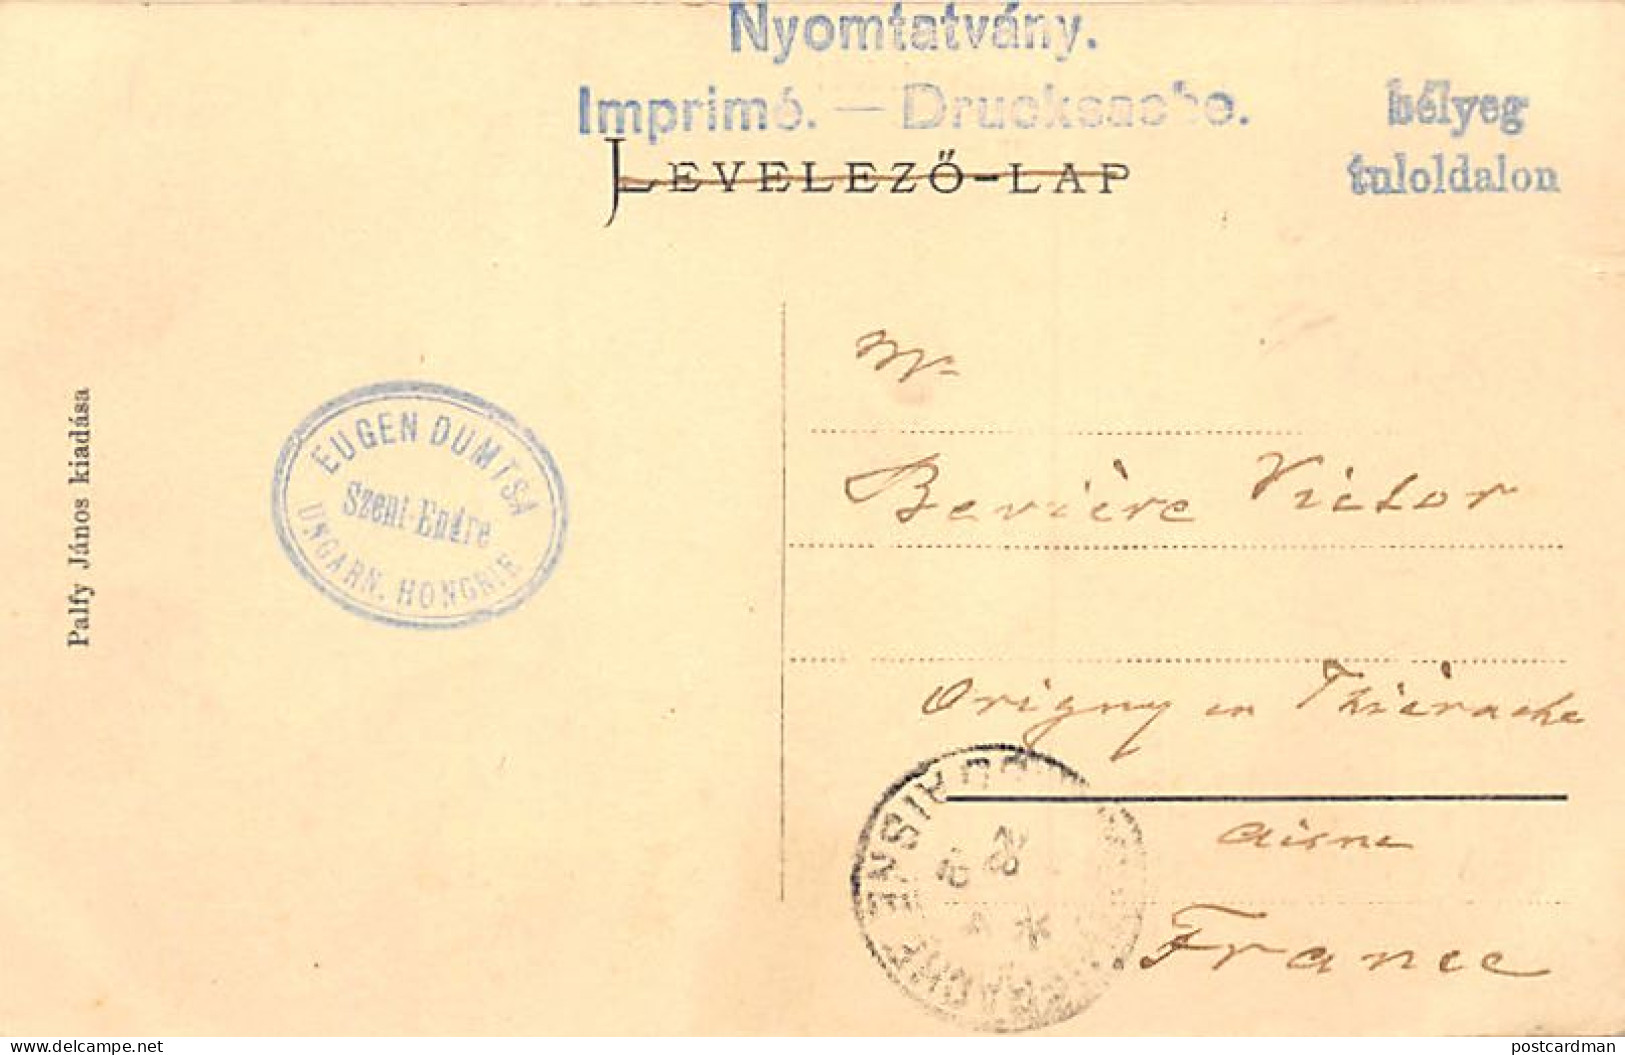 Nyomtatvány.
Imprimé. — Drucksache.
bélyeg
tuloldalon
LEVELEZŐ-LAP
Palfy János kiadása
EUGEN DUMITSA
Szent-Endre
UNGARN. HONGRIE
Mr
Berière Victor
Origny en Thiérache
Aisne
France
AISNE
www.delcampe.net
postcardman